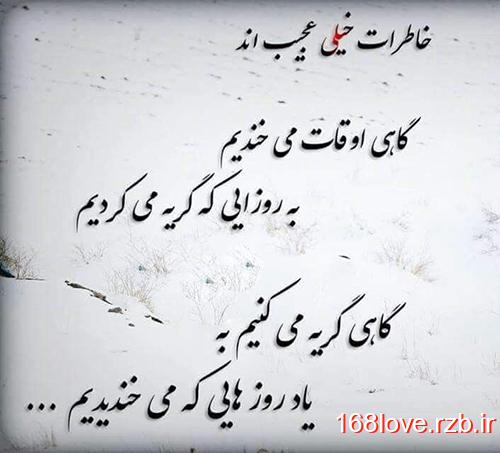 خاطرات خیلی عجیب اند
گاهی اوقات می خندیم
به روزایی که گریه می کردیم
گاهی گریه می کنیم به
یاد روز هایی که می خندیدیم ...
168love.rzb.ir